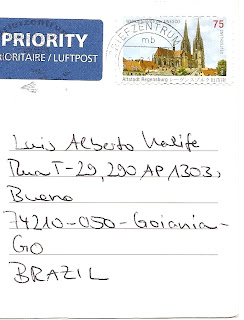 PRIORITY
PRIORITAIRE / LUFTPOST
BRIEFZENTRUM
mb
75
Altstadt Regensburg
Luis Alberto Kalife
Rua T-29, 290, AP, 1303,
Bueno
74210-050-Goiania-
GO
BRAZIL